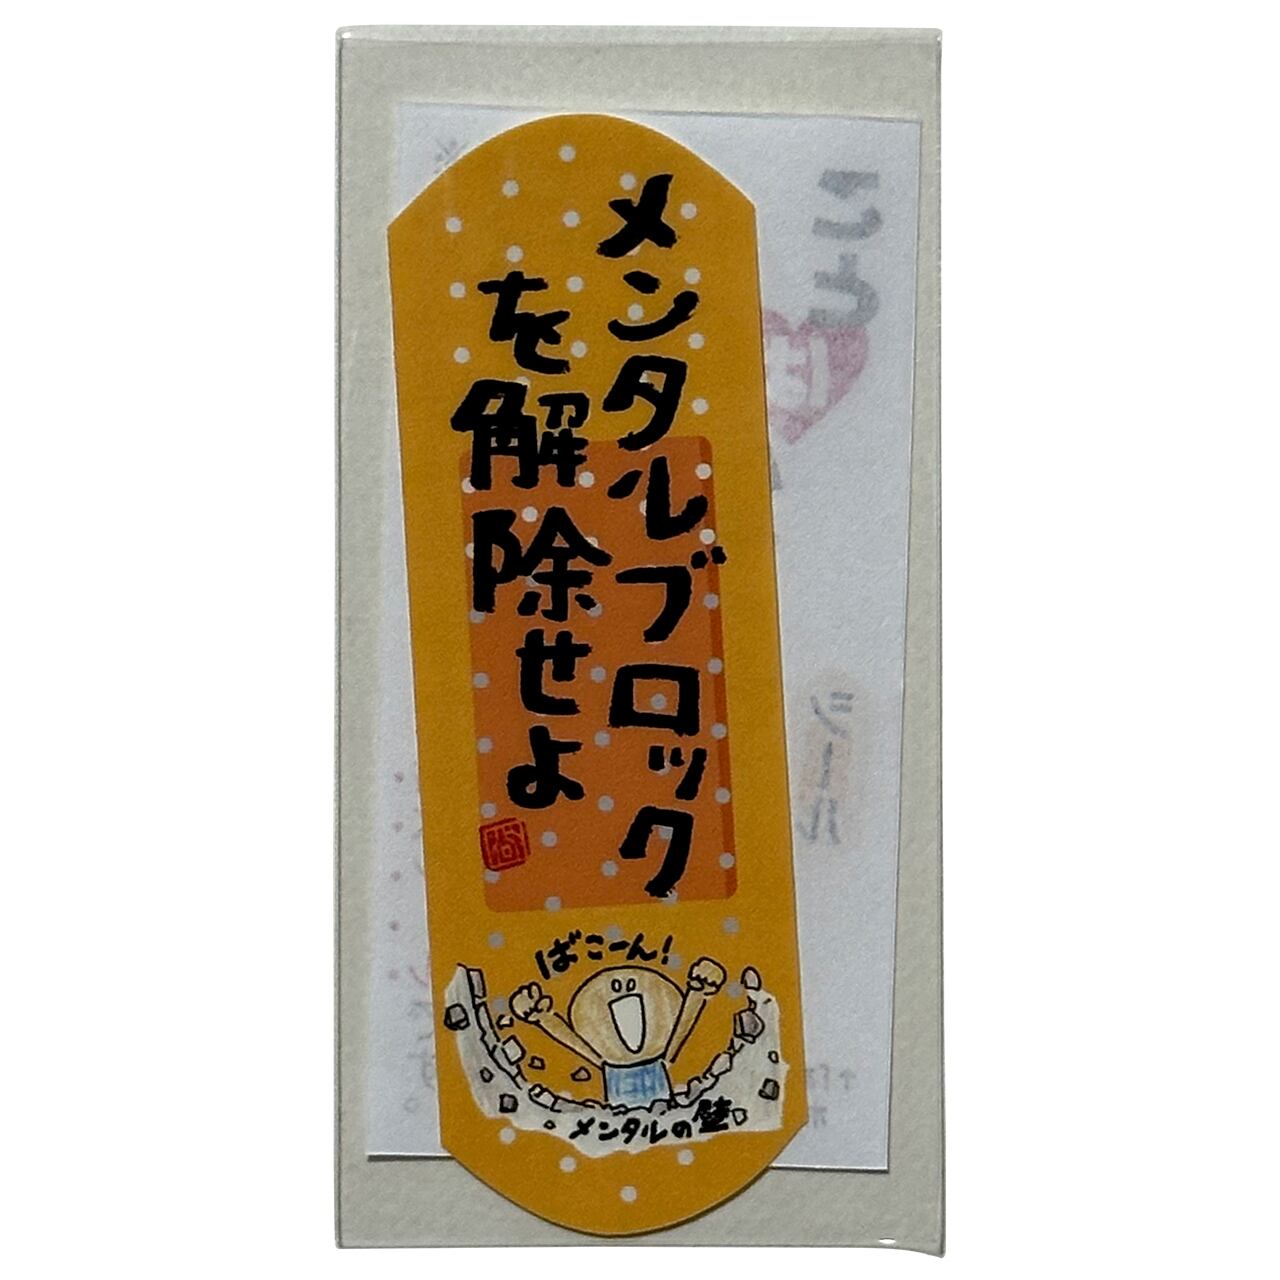 メンタルブロック
を解除せよ
ばこーん!
メンタルの壁
シール